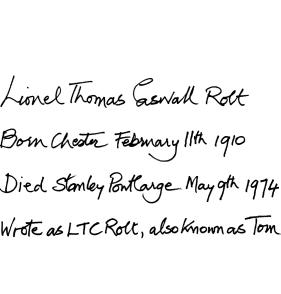 Lionel Thomas Caswall Rolt
Born Chester February 11th 1910
Died Stanley Pontlarge May 9th 1974
Wrote as LTC Rolt, also known as Tom